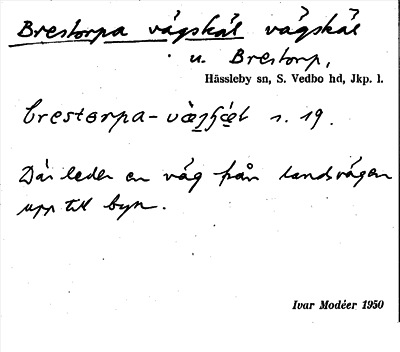 Brestorpa vägskäl vägskäl
u. Brestorp,
Hässleby sn, S. Vedbo hd, Jkp. l.
s. 19.
Där leder en väg från landsvägen
upp till byn.
Ivar Modéer 1950